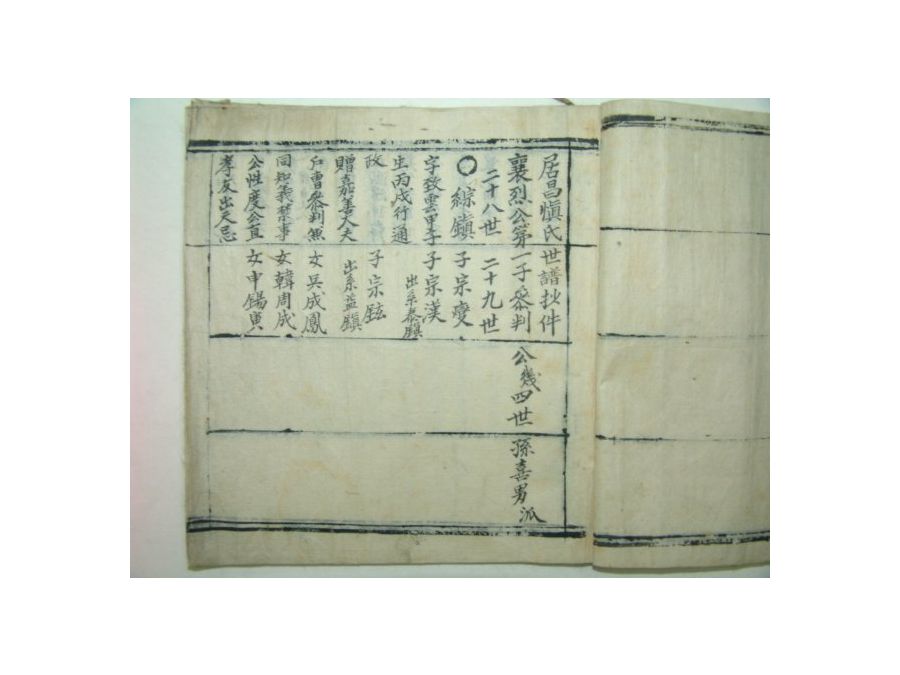 居昌愼氏世譜抄件
襄烈公第一子叅判公幾四世孫喜男派
二十八世
二十九世
○綜鎭
子宗燮
字致雲甲子
子宗漢
出系泰鎭
生丙戌行通
政
子宗鉉
贈嘉善大夫
出系益鎭
戶曹叅判無
女吳成鳳
同知義禁事
女韓周成
公性度公直
女申錫寅
孝友出天忌